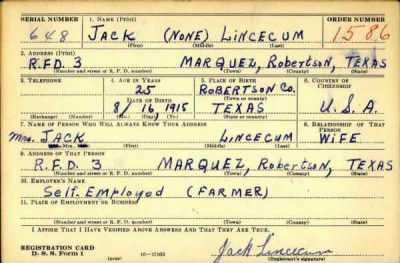 SERIAL NUMBER 1. NAME (Print) ORDER NUMBER
648 JACK (NONE) LINCECUM 1586
(First) (Middle) (Last)
2. ADDRESS (Print)
R.F.D. 3 MARQUEZ, Robertson, TEXAS
(Number and street or R. F. D. number) (Town) (County) (State)
3. TELEPHONE 4. AGE IN YEARS 5. PLACE OF BIRTH 6. COUNTRY OF CITIZENSHIP
25 ROBERTSON CO.
DATE OF BIRTH (Town or county)
8/ 16 1915 TEXAS U.S.A.
(Exchange) (Number) (Mo.) (Day) (Yr.) (State or country)
7. NAME OF PERSON WHO WILL ALWAYS KNOW YOUR ADDRESS 8. RELATIONSHIP OF THAT PERSON
Mrs. JACK LINCECUM WIFE
(First) (Middle) (Last)
9. ADDRESS OF THAT PERSON
R.F.D. 3 MARQUEZ, Robertson, TEXAS
(Number and street or R. F. D. number) (Town) (County) (State)
10. EMPLOYER'S NAME
Self-Employed (FARMER)
11. PLACE OF EMPLOYMENT OR BUSINESS
(Number and street or R. F. D. number) (Town) (County) (State)
I AFFIRM THAT I HAVE VERIFIED ABOVE ANSWERS AND THAT THEY ARE TRUE.
REGISTRATION CARD
D. S. S. Form 1 (over) Jack Lincecum
(Registrant's signature)